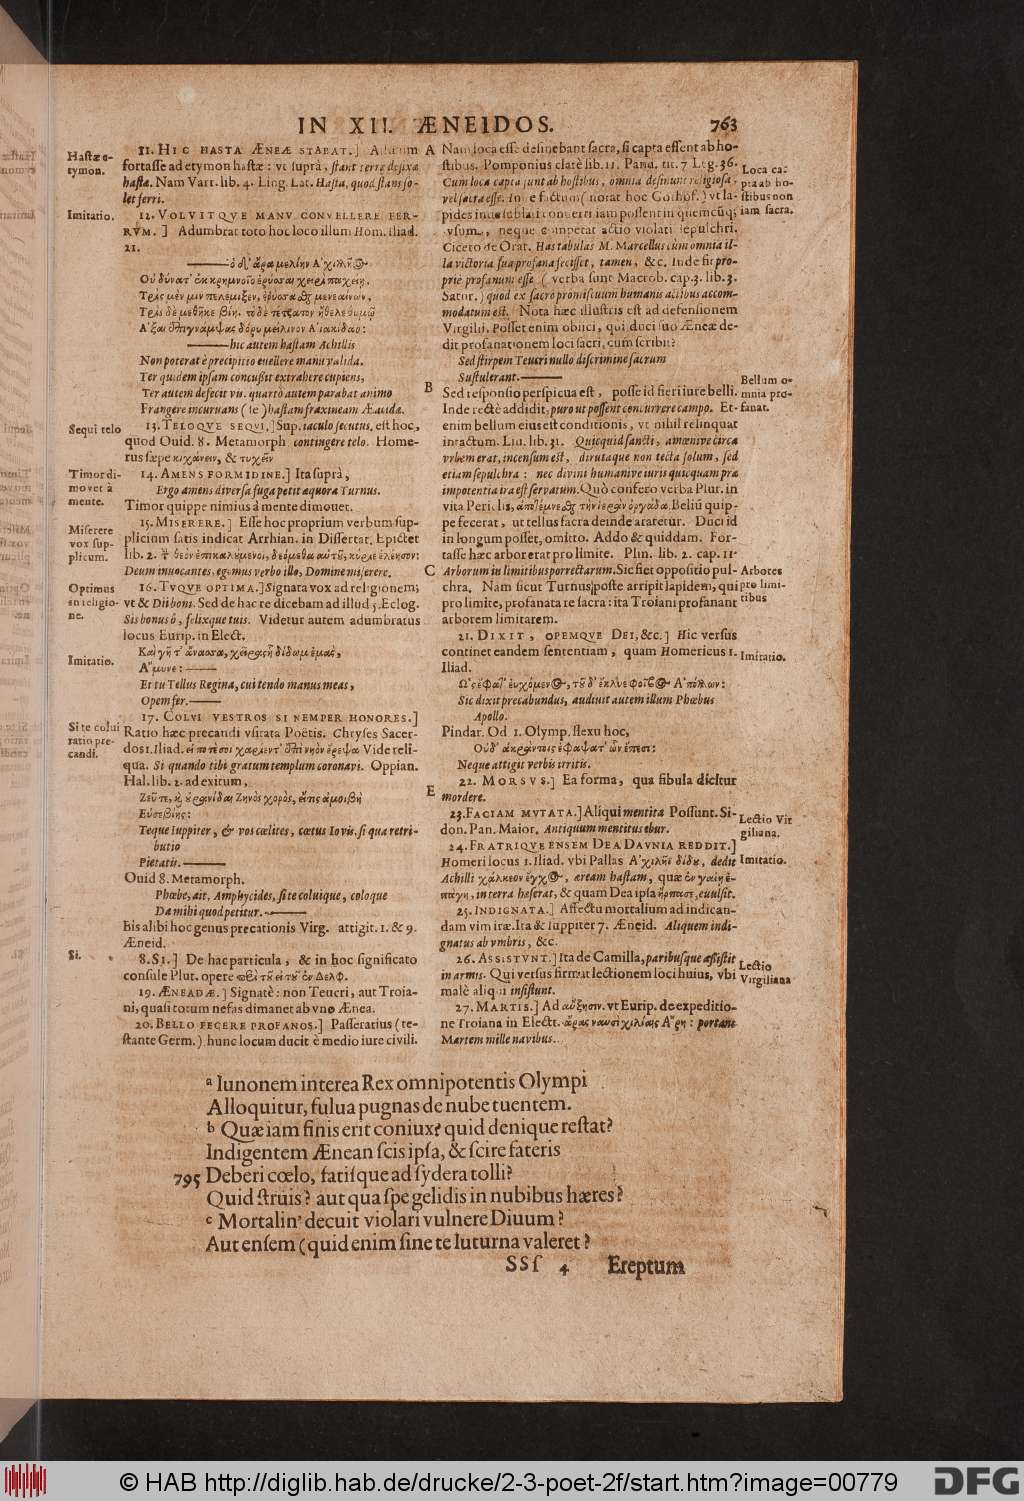 IN XII. ÆNEIDOS. 763
Hastæ e-
tymon.
11. HIC HASTA ÆNEÆ STABAT.]
fortasse ad etymon hastæ: vt suprà, stant terrę defixæ
hastæ. Nam Varr. lib. 4. Ling. Lat. Hasta, quod stans so-
let ferri.
Imitatio.
12. VOLVITQVE MANV CONVELLERE FER-
RVM.] Adumbrat toto hoc loco illum Hom. iliad.
21.
Οὐ δύνατ' ἐκ κρημνοῖο ἐρύσσαι χειρὶ παχείῃ.
Τρὶς μέν μιν πελέμιξεν, ἐρύσσαι μενεαίνων,
hic autem hastam Achillis
Non poterat è precipitio euellere manu valida.
Ter quidem ipsam concußit extrahere cupiens,
Ter autem defecit vis. quartò autem parabat animo
Frangere incuruans (se) hastam fraxineam Æacidæ.
Sequi telo
13. TELOQVE SEQVI.] Sup. iaculo secutus. est hoc,
quod Ouid. 8. Metamorph. contingere telo. Home-
rus sæpe κιχάνειν, & τυχεῖν
Timor di-
mouet à
mente.
14. AMENS FORMIDINE.] Ita suprà,
Ergo amens diuersa fuga petit æquora Turnus.
Timor quippe nimius à mente dimouet.
Miserere
vox sup-
plicum.
15. MISERERE.] Esse hoc proprium verbum sup-
plicium satis indicat Arrhian. in Dissertat. Epictet
lib. 2. θεὸν ἐπικαλούμενοι, δεόμεθα αὐτοῦ, κύριε ἐλέησον:
Deum inuocantes, egemus verbo illo, Domine miserere.
Optimus
in religio-
ne.
16. TVQVE OPTIMA.] Signata vox ad religionem;
vt & Dii boni. Sed de hac re dicebam ad illud 5. Eclog.
Sis bonus ô, felixque tuis. Videtur autem adumbratus
locus Eurip. in Elect.
Imitatio.
Ἄμυνε:
Et tu Tellus Regina, cui tendo manus meas,
Opem fer.
Si te colui
ratio pre-
candi.
17. COLVI VESTROS SI SEMPER HONORES.]
Ratio hæc precandi vsitata Poëtis. Chryses Sacer-
dos 1. Iliad. Vide reli-
qua. Si quando tibi gratum templum coronavi. Oppian.
Hal. lib. 2. ad exitum,
Εὐσεβίης:
Teque Iuppiter, & vos cœlites, cœtus Iovis, si qua retri-
butio
Pietatis.
Ouid 8. Metamorph.
Phœbe, ait, Amphycides, si te coluique, coloque
Da mihi quod petitur.
Bis alibi hoc genus precationis Virg. attigit. 1. & 9.
Æneid.
Si.
8. SI.] De hac particula, & in hoc significato
consule Plut. opere περὶ τοῦ εἰ τοῦ ἐν Δελφ.
19. ÆNEADÆ.] Signatè: non Teucri, aut Troia-
ni, quasi totum nefas dimanet ab vno Ænea.
20. BELLO FECERE PROFANOS.] Passeratius (te-
stante Germ.) hunc locum ducit è medio iure civili.
A
Nam loca esse desinebant sacra, si capta essent ab ho-
stibus. Pomponius clatè lib. 11. Pand. tit. 7 Leg. 36.
Cum loca capta sunt ab hostibus, omnia desinunt religiosa,
vel sacra esse. Inde factum (notat hoc Gothof.) vt la-
pides inde sublati conuerti iam possent in quemcūq;
vsum, neque competat actio violati sepulchri.
Cicero de Orat. Has tabulas M. Marcellus cùm omnia il-
la victoria sua profana fecisset, tamen, &c. Inde fit pro-
prie profanum esse (verba sunt Macrob. cap. 3. lib. 3.
Satur.) quod ex sacro promiscuum humanis actibus accom-
modatum est. Nota hæc illustris est ad defensionem
Virgilij. Posset enim obiici, qui duci suo Æneæ de-
dit profanationem loci sacri, cum scribit?
Sed stirpem Teucri nullo discrimine sacrum
Sustulerant.
Loca ca-
pta ab ho-
stibus non
iam sacra.
B
Sed responsio perspicua est, posse id fieri iure belli.
Inde rectè addidit, puro ut possent concurrere campo. Et-
enim bellum eius est conditionis, vt nihil relinquat
intactum. Liu. lib. 31. Quicquid sancti, amœnive circa
vrbem erat, incensum est, dirutaque non tecta solum, sed
etiam sepulchra: nec divini humanive iuris quicquam præ
impotentia ira est servatum. Quò confero verba Plut. in
vita Periclis, Bellū quip-
pe fecerat, ut tellus sacra deinde araretur. Duci id
in longum posset, omitto. Addo & quiddam. For-
tasse hæc arbor erat pro limite. Plin. lib. 2. cap. 11.
Bellum o-
mnia pro-
fanat.
C
Arborum in limitibus porrectarum. Sic fiet oppositio pul-
chra. Nam sicut Turnus poste arripit lapidem, qui
pro limite, profanata re sacra: ita Troiani profanant
arborem limitarem.
Arbores
pro limi-
tibus
21. DIXIT, OPEMQVE DEI, &c.] Hic versus
continet eandem sententiam, quam Homericus 1.
Iliad.
Imitatio.
Sic dixit precabundus, audiuit autem illum Phœbus
Apollo.
Pindar. Od 1. Olymp. flexu hoc,
Neque attigit verbis irritis.
22. MORSVS.] Ea forma, qua fibula dicitur
E
mordere.
23. FACIAM MVTATA.] Aliqui mentita Possunt. Si-
don. Pan. Maior. Antiquum mentitus ebur.
Lectio Vir
giliana.
24. FRATRIQVE ENSEM DEA DAVNIA REDDIT.]
Homeri locus 1. Iliad. vbi Pallas Ἀχιλῆϊ δίδου, dedit
Achilli χάλκεον ἔγχος, æream hastam, quæ ἐν γαίῃ ἐ-
πάγη, in terra hæserat, & quam Dea ipsa ἥρπασε, euulsit.
Imitatio.
25. INDIGNATA.] Affectu mortalium ad indican-
dam vim iræ. Ita & Iuppiter 7. Æneid. Aliquem indi-
gnatus ab vmbris, &c.
26. ASSISTVNT.] Ita de Camilla, paribusque assistit
in armis. Qui versus firmat lectionem loci huius, vbi
malè aliqui insistunt.
Lectio
Virgiliana
27. MARTIS.] Ad αὔξησιν. vt Eurip. de expeditio-
ne Troiana in Electr. Ἄρη: portans
Martem mille navibus.
a Iunonem interea Rex omnipotentis Olympi
Alloquitur, fulua pugnas de nube tuentem.
b Quæ iam finis erit coniux? quid denique restat?
Indigentem Ænean scis ipsa, & scire fateris
795 Deberi cœlo, fatisque ad sydera tolli?
Quid struis? aut qua spe gelidis in nubibus hæres?
c Mortalin' decuit violari vulnere Diuum?
Aut ensem (quid enim sine te Iuturna valeret?
SSs 4 Ereptum
© HAB http://diglib.hab.de/drucke/2-3-poet-2f/start.htm?image=00779
DFG